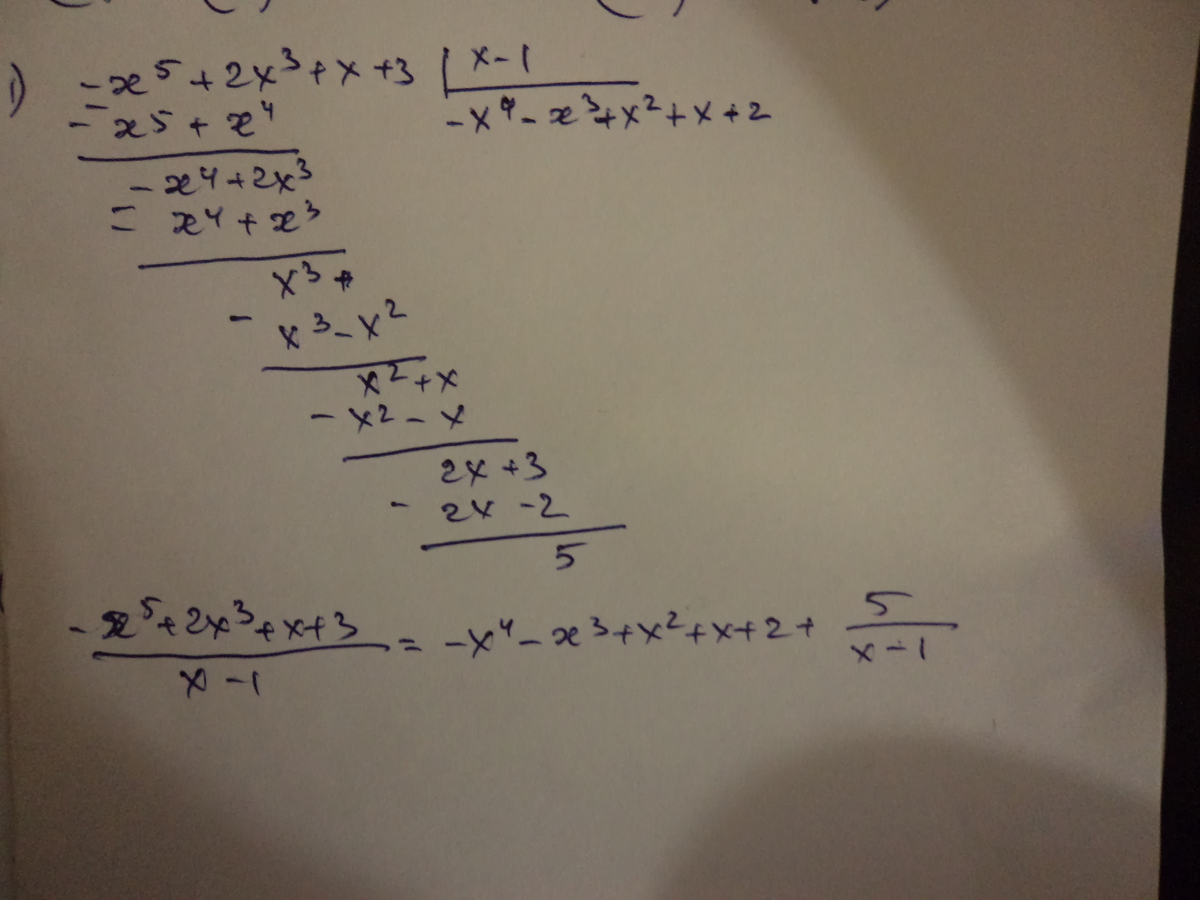 1) -x⁵ + 2x³ + x + 3 | x - 1
- x⁵ + x⁴ -x⁴ - x³ + x² + x + 2
- x⁴ + 2x³
= x⁴ + x³
x³ +
- x³ - x²
x² + x
- x² - x
2x + 3
- 2x - 2
5
-x⁵ + 2x³ + x + 3 / x - 1 = -x⁴ - x³ + x² + x + 2 + 5 / x - 1